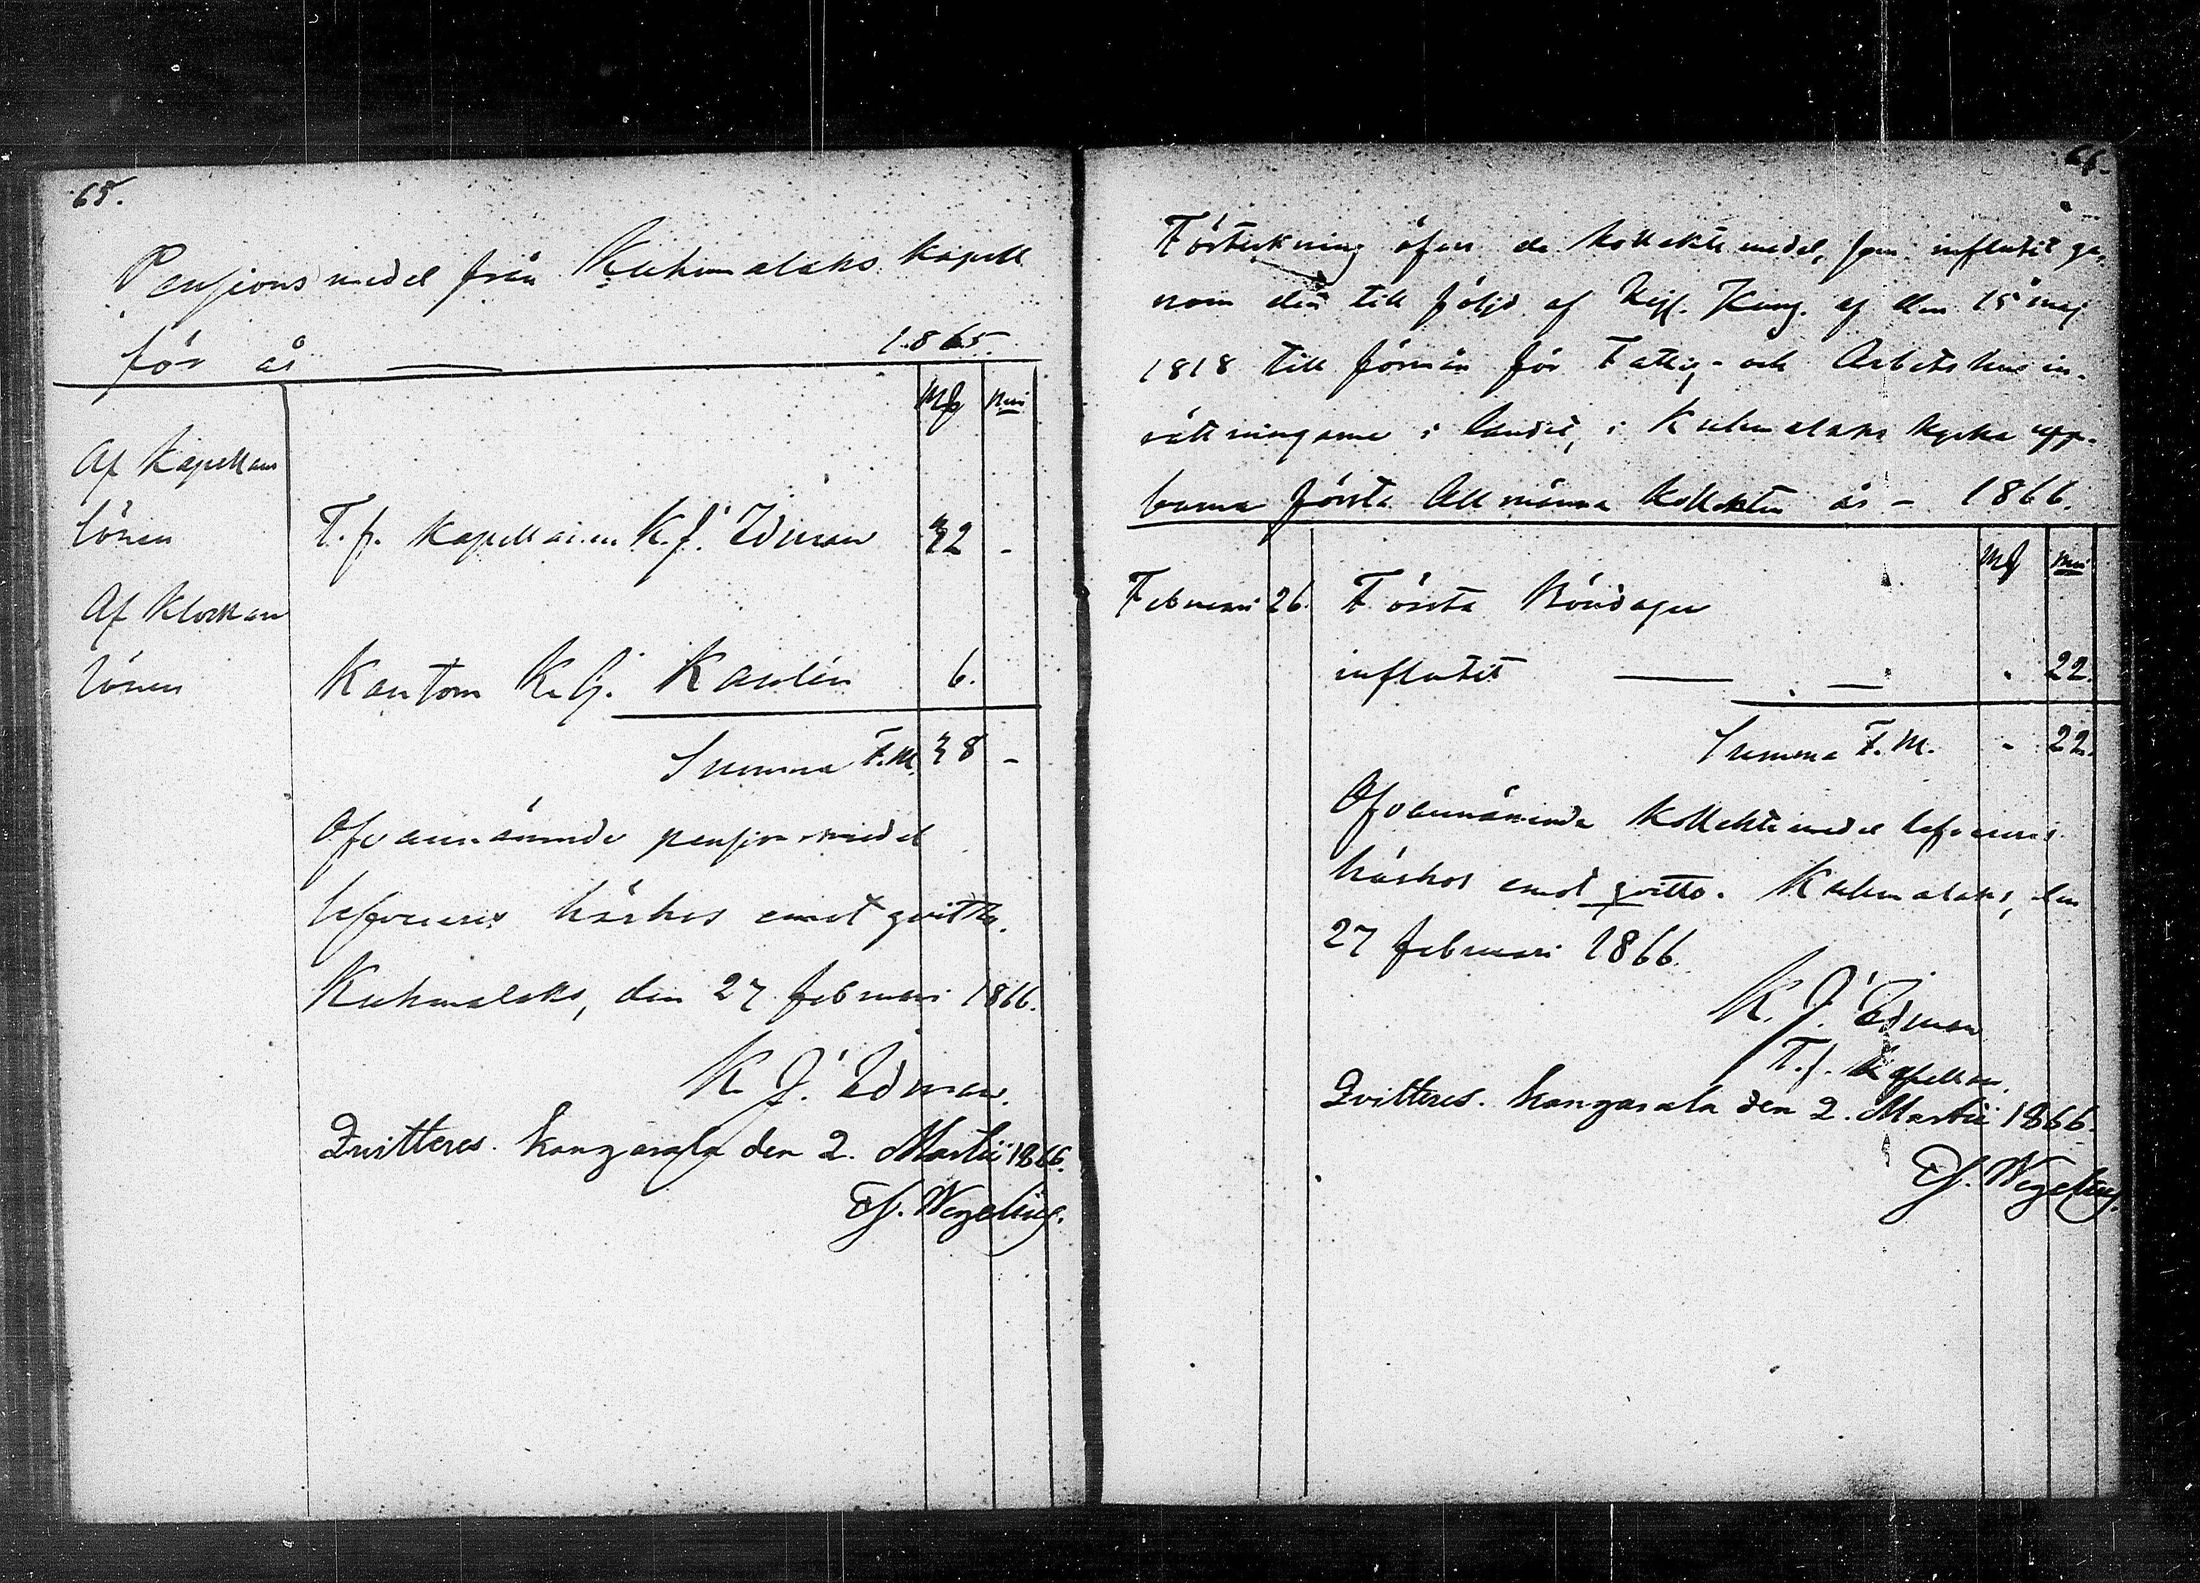 65.
Pensions medel från Kuhmalaks Kapell
för år — 1865.
Mk pni
Af Kapellans
lönen T. f. Kapellanen K. J. Edman 32 -
Af Klockare
lönen Kantorn K. G. Kaulén 6.
Summa F.M. 38 -
Ofvannämnde pensionsmedel
lefvereres härhos emot qvitto.
Kuhmalaks, den 27 februari 1866.
K. J. Edman.
Qvitteres. Kangasala den 2. Martii 1866.
Wegelius.
66.
Förteckning öfver de kollektmedel, som influtit ge-
nom den till följd af Kejs. Kung. af den 15 maj
1818 till förmån för Fattig- och Arbetshus in-
rättningarne i landet, i Kuhmalaks kyrka upp-
burna första Allmänna Kollekten år - 1866.
Mk pni
Februari 26. Första Böndagen
influtit — — . 22.
Summa F.M. - 22.
Ofvannämnda Kollektmedel lefvereres
härhos emot qvitto. Kuhmalaks, den
27 februari 1866.
K. J. Edman
T. f. Kapellan.
Qvitteres. Kangasala den 2. Martii 1866.
Wegelius.